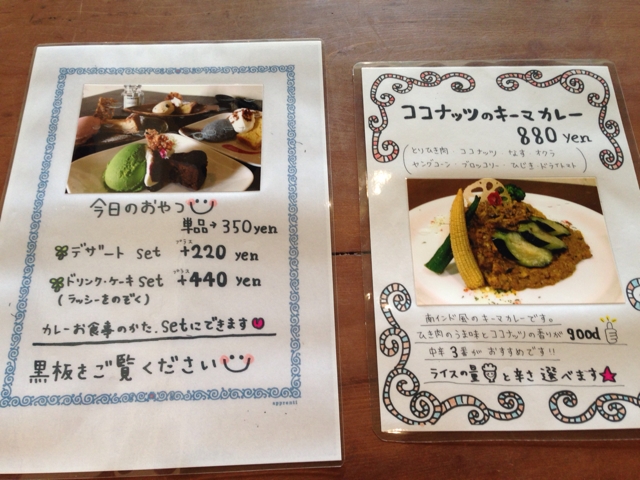 今日のおやつ
単品→350yen
デザート set +プラス220 yen
ドリンク・ケーキ set +プラス440 yen
(ラッシーをのぞく)
カレーお食事のかた、setにできます
黒板をご覧ください
ココナッツのキーマカレー
880 yen
(とりひき肉・ココナッツ なす オクラ
ヤングコーン・ブロッコリー・ひじき・ドライトマト)
南インド風のキーマカレーです。
ひき肉のうま味とココナッツの香りが good
中辛 3番が おすすめです!!
ライスの量と辛さ選べます